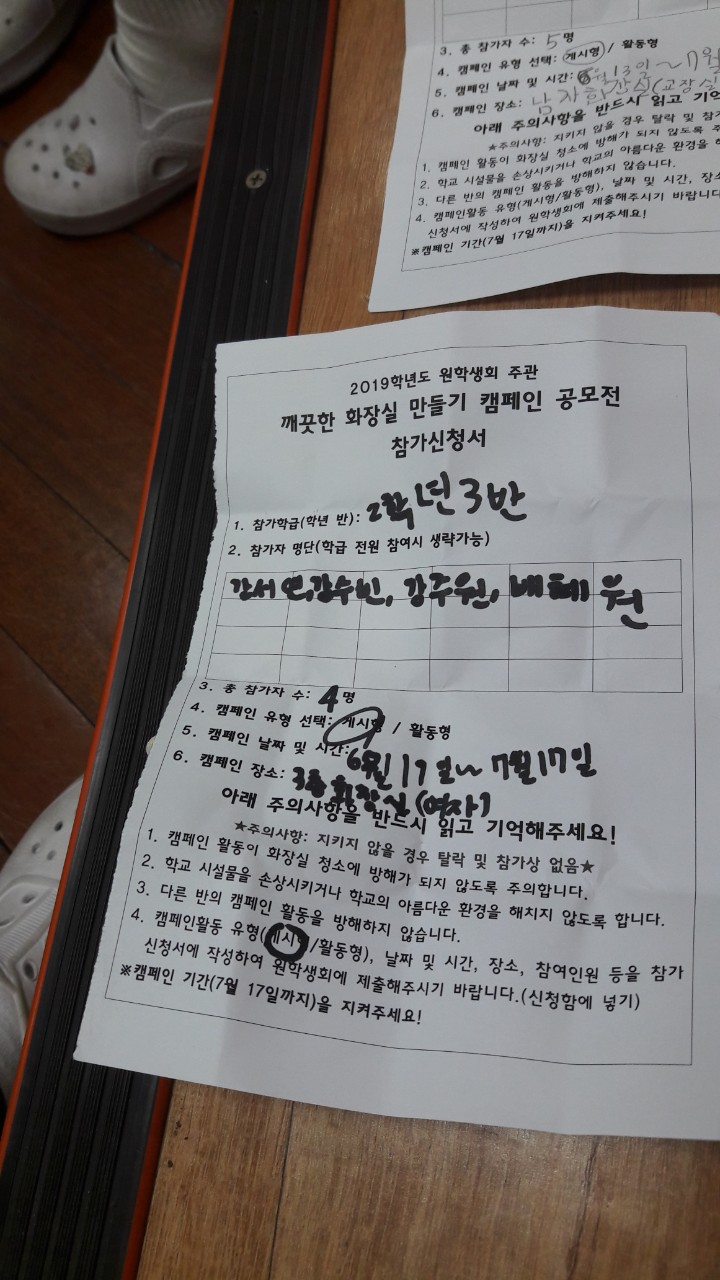 3. 총 참가자 수: 5명
4. 캠페인 유형 선택: 게시형 / 활동형
5. 캠페인 날짜 및 시간: 6월 13일 ~ 7월
6. 캠페인 장소: 남자화장실(교장실
아래 주의사항을 반드시 읽고 기억
★주의사항: 지키지 않을 경우 탈락 및 참가
1. 캠페인 활동이 화장실 청소에 방해가 되지 않도록 주
2. 학교 시설물을 손상시키거나 학교의 아름다운 환경을 해
3. 다른 반의 캠페인 활동을 방해하지 않습니다.
4. 캠페인활동 유형(게시형/활동형), 날짜 및 시간, 장소
신청서에 작성하여 원학생회에 제출해주시기 바랍니다.
※캠페인 기간(7월 17일까지)을 지켜주세요!
2019학년도 원학생회 주관
깨끗한 화장실 만들기 캠페인 공모전
참가신청서
1. 참가학급(학년 반): 2학년 3반
2. 참가자 명단(학급 전원 참여시 생략가능)
강서연, 강수빈, 강주원, 배혜원
3. 총 참가자 수: 4명
4. 캠페인 유형 선택: 게시형 / 활동형
5. 캠페인 날짜 및 시간: 6월 17일 ~ 7월 17일
6. 캠페인 장소: 3층 화장실 (여자)
아래 주의사항을 반드시 읽고 기억해주세요!
★주의사항: 지키지 않을 경우 탈락 및 참가상 없음★
1. 캠페인 활동이 화장실 청소에 방해가 되지 않도록 주의합니다.
2. 학교 시설물을 손상시키거나 학교의 아름다운 환경을 해치지 않도록 합니다.
3. 다른 반의 캠페인 활동을 방해하지 않습니다.
4. 캠페인활동 유형(게시형/활동형), 날짜 및 시간, 장소, 참여인원 등을 참가
신청서에 작성하여 원학생회에 제출해주시기 바랍니다.(신청함에 넣기)
※캠페인 기간(7월 17일까지)을 지켜주세요!